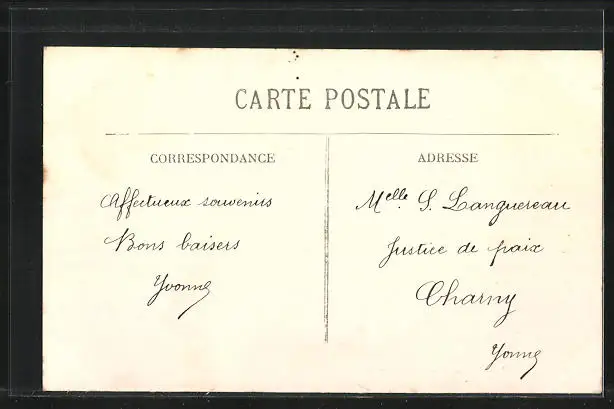 CARTE POSTALE
CORRESPONDANCE
Affectueux souvenirs
Bons baisers
Yvonne
ADRESSE
Melle. S. Languereau
Justice de paix
Charny
Yonne